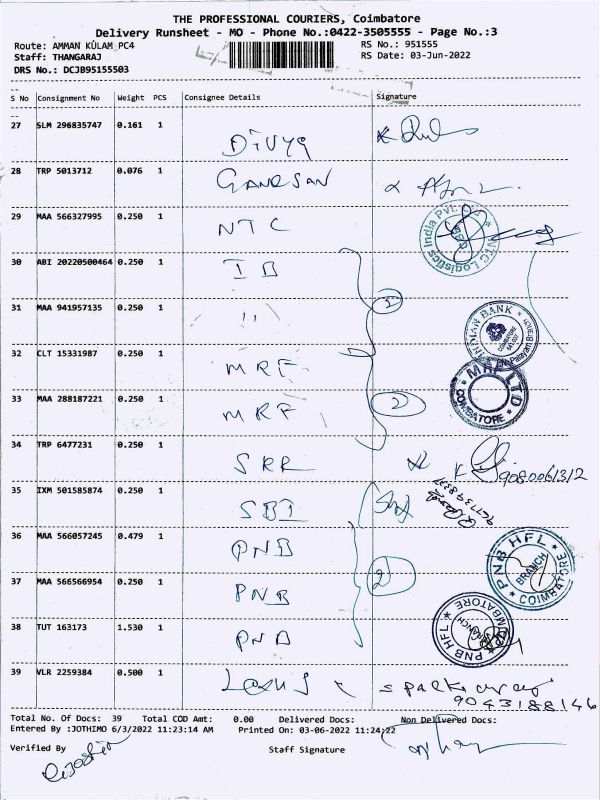 THE PROFESSIONAL COURIERS, Coimbatore
Delivery Runsheet - MO - Phone No.:0422-3505555 - Page No.:3
Route: AMMAN KULAM PC4 RS No.: 951555
Staff: THANGARAJ RS Date: 03-Jun-2022
DRS No.: DCJB95155503
S No Consignment No Weight PCS Consignee Details Signature
27 SLM 296835747 0.161 1 Divya
28 TRP 5013712 0.076 1 GANESAN
29 MAA 566327995 0.250 1 NTC
NTC Logistics India Pvt. Ltd
30 ABI 20220500464 0.250 1 IB
31 MAA 941957135 0.250 1 11 2
INDIAN BANK
COIMBATORE
32 CLT 15331987 0.250 1 MRF
MRF LTD
COIMBATORE
33 MAA 288187221 0.250 1 MRF 2
34 TRP 6477231 0.250 1 SRR
9080061312
35 IXM 501585874 0.250 1 SBI
36 MAA 566057245 0.479 1 PNB
PNB HFL
BRANCH
COIMBATORE
37 MAA 566566954 0.250 1 PNB 2
38 TUT 163173 1.530 1 PNB
PNB HFL
BRANCH
COIMBATORE
39 VLR 2259384 0.500 1
9043188146
Total No. Of Docs: 39 Total COD Amt: 0.00 Delivered Docs: Non Delivered Docs:
Entered By :JOTHIMO 6/3/2022 11:23:14 AM Printed On: 03-06-2022 11:24:22
Verified By Staff Signature